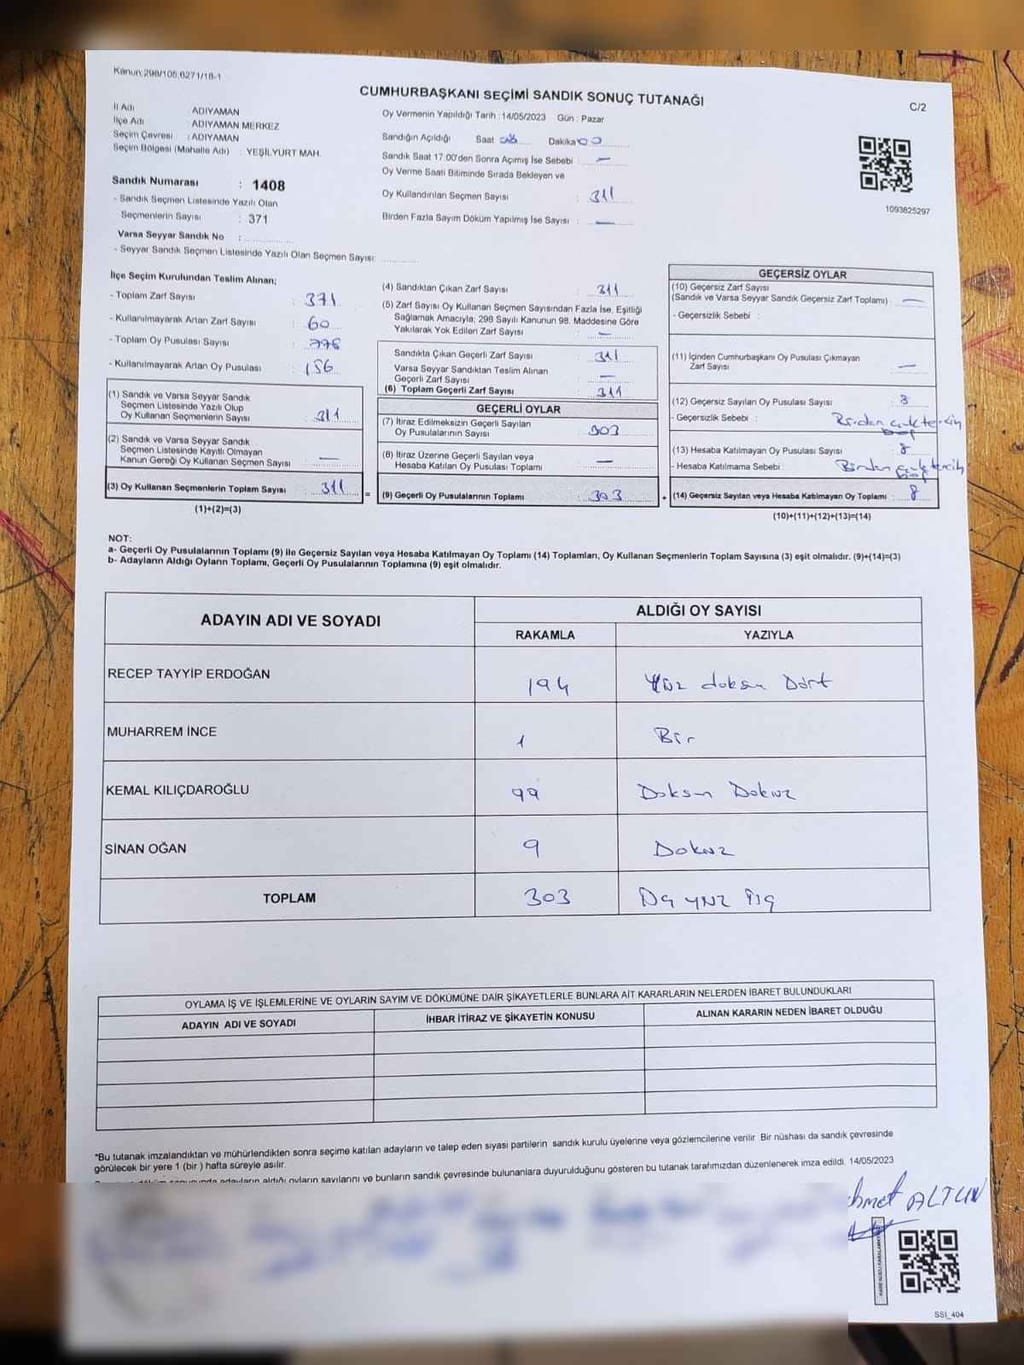 Kanun:298/105,6271/18-1
CUMHURBAŞKANI SEÇİMİ SANDIK SONUÇ TUTANAĞI
C/2
İl Adı : ADIYAMAN
İlçe Adı : ADIYAMAN MERKEZ
Seçim Çevresi : ADIYAMAN
Seçim Bölgesi (Mahalle Adı) : YEŞİLYURT MAH.
Sandık Numarası : 1408
- Sandık Seçmen Listesinde Yazılı Olan
Seçmenlerin Sayısı : 371
Varsa Seyyar Sandık No :
- Seyyar Sandık Seçmen Listesinde Yazılı Olan Seçmen Sayısı:
Oy Vermenin Yapıldığı Tarih : 14/05/2023 Gün : Pazar
Sandığın Açıldığı Saat 08 Dakika 00
Sandık Saat 17:00'den Sonra Açımış İse Sebebi : —
Oy Verme Saati Bitiminde Sırada Bekleyen ve
Oy Kullandırılan Seçmen Sayısı : 311
Birden Fazla Sayım Döküm Yapılmış İse Sayısı : —
1093825297
İlçe Seçim Kurulundan Teslim Alınan;
- Toplam Zarf Sayısı : 371
- Kullanılmayarak Artan Zarf Sayısı : 60
- Toplam Oy Pusulası Sayısı :
- Kullanılmayarak Artan Oy Pusulası : 156
(1) Sandık ve Varsa Seyyar Sandık
Seçmen Listesinde Yazılı Olup
Oy Kullanan Seçmenlerin Sayısı : 311
(2) Sandık ve Varsa Seyyar Sandık
Seçmen Listesinde Kayıtlı Olmayan
Kanun Gereği Oy Kullanan Seçmen Sayısı : —
(3) Oy Kullanan Seçmenlerin Toplam Sayısı : 311
(1)+(2)=(3)
(4) Sandıktan Çıkan Zarf Sayısı : 311
(5) Zarf Sayısı Oy Kullanan Seçmen Sayısından Fazla İse, Eşitliği
Sağlamak Amacıyla; 298 Sayılı Kanunun 98. Maddesine Göre
Yakılarak Yok Edilen Zarf Sayısı : —
Sandıkta Çıkan Geçerli Zarf Sayısı : 311
Varsa Seyyar Sandıktan Teslim Alınan
Geçerli Zarf Sayısı : —
(6) Toplam Geçerli Zarf Sayısı : 311
GEÇERLİ OYLAR
(7) İtiraz Edilmeksizin Geçerli Sayılan
Oy Pusulalarının Sayısı : 303
(8) İtiraz Üzerine Geçerli Sayılan veya
Hesaba Katılan Oy Pusulası Toplamı : —
= (9) Geçerli Oy Pusulalarının Toplamı : 303 +
GEÇERSİZ OYLAR
(10) Geçersiz Zarf Sayısı
(Sandık ve Varsa Seyyar Sandık Geçersiz Zarf Toplamı) : —
- Geçersizlik Sebebi :
(11) İçinden Cumhurbaşkanı Oy Pusulası Çıkmayan
Zarf Sayısı : —
(12) Geçersiz Sayılan Oy Pusulası Sayısı : 8
- Geçersizlik Sebebi : Birden çok tercih
(13) Hesaba Katılmayan Oy Pusulası Sayısı : 8
- Hesaba Katılmama Sebebi : Birden çok tercih
(14) Geçersiz Sayılan veya Hesaba Katılmayan Oy Toplamı : 8
(10)+(11)+(12)+(13)=(14)
NOT:
a- Geçerli Oy Pusulalarının Toplamı (9) ile Geçersiz Sayılan veya Hesaba Katılmayan Oy Toplamı (14) Toplamları, Oy Kullanan Seçmenlerin Toplam Sayısına (3) eşit olmalıdır. (9)+(14)=(3)
b- Adayların Aldığı Oyların Toplamı, Geçerli Oy Pusulalarının Toplamına (9) eşit olmalıdır.
ADAYIN ADI VE SOYADI
ALDIĞI OY SAYISI
RAKAMLA YAZIYLA
RECEP TAYYİP ERDOĞAN 194 Yüz doksan Dört
MUHARREM İNCE 1 Bir
KEMAL KILIÇDAROĞLU 99 Doksan Dokuz
SİNAN OĞAN 9 Dokuz
TOPLAM 303 Üç yüz üç
OYLAMA İŞ VE İŞLEMLERİNE VE OYLARIN SAYIM VE DÖKÜMÜNE DAİR ŞİKAYETLERLE BUNLARA AİT KARARLARIN NELERDEN İBARET BULUNDUKLARI
ADAYIN ADI VE SOYADI İHBAR İTİRAZ VE ŞİKAYETİN KONUSU ALINAN KARARIN NEDEN İBARET OLDUĞU
*Bu tutanak imzalandıktan ve mühürlendikten sonra seçime katılan adayların ve talep eden siyasi partilerin sandık kurulu üyelerine veya gözlemcilerine verilir. Bir nüshası da sandık çevresinde
görülecek bir yere 1 (bir) hafta süreyle asılır.
adayların aldığı oyların sayılarını ve bunların sandık çevresinde bulunanlara duyurulduğunu gösteren bu tutanak tarafımızdan düzenlenerek imza edildi. 14/05/2023
hmet ALTUN
SSI_404